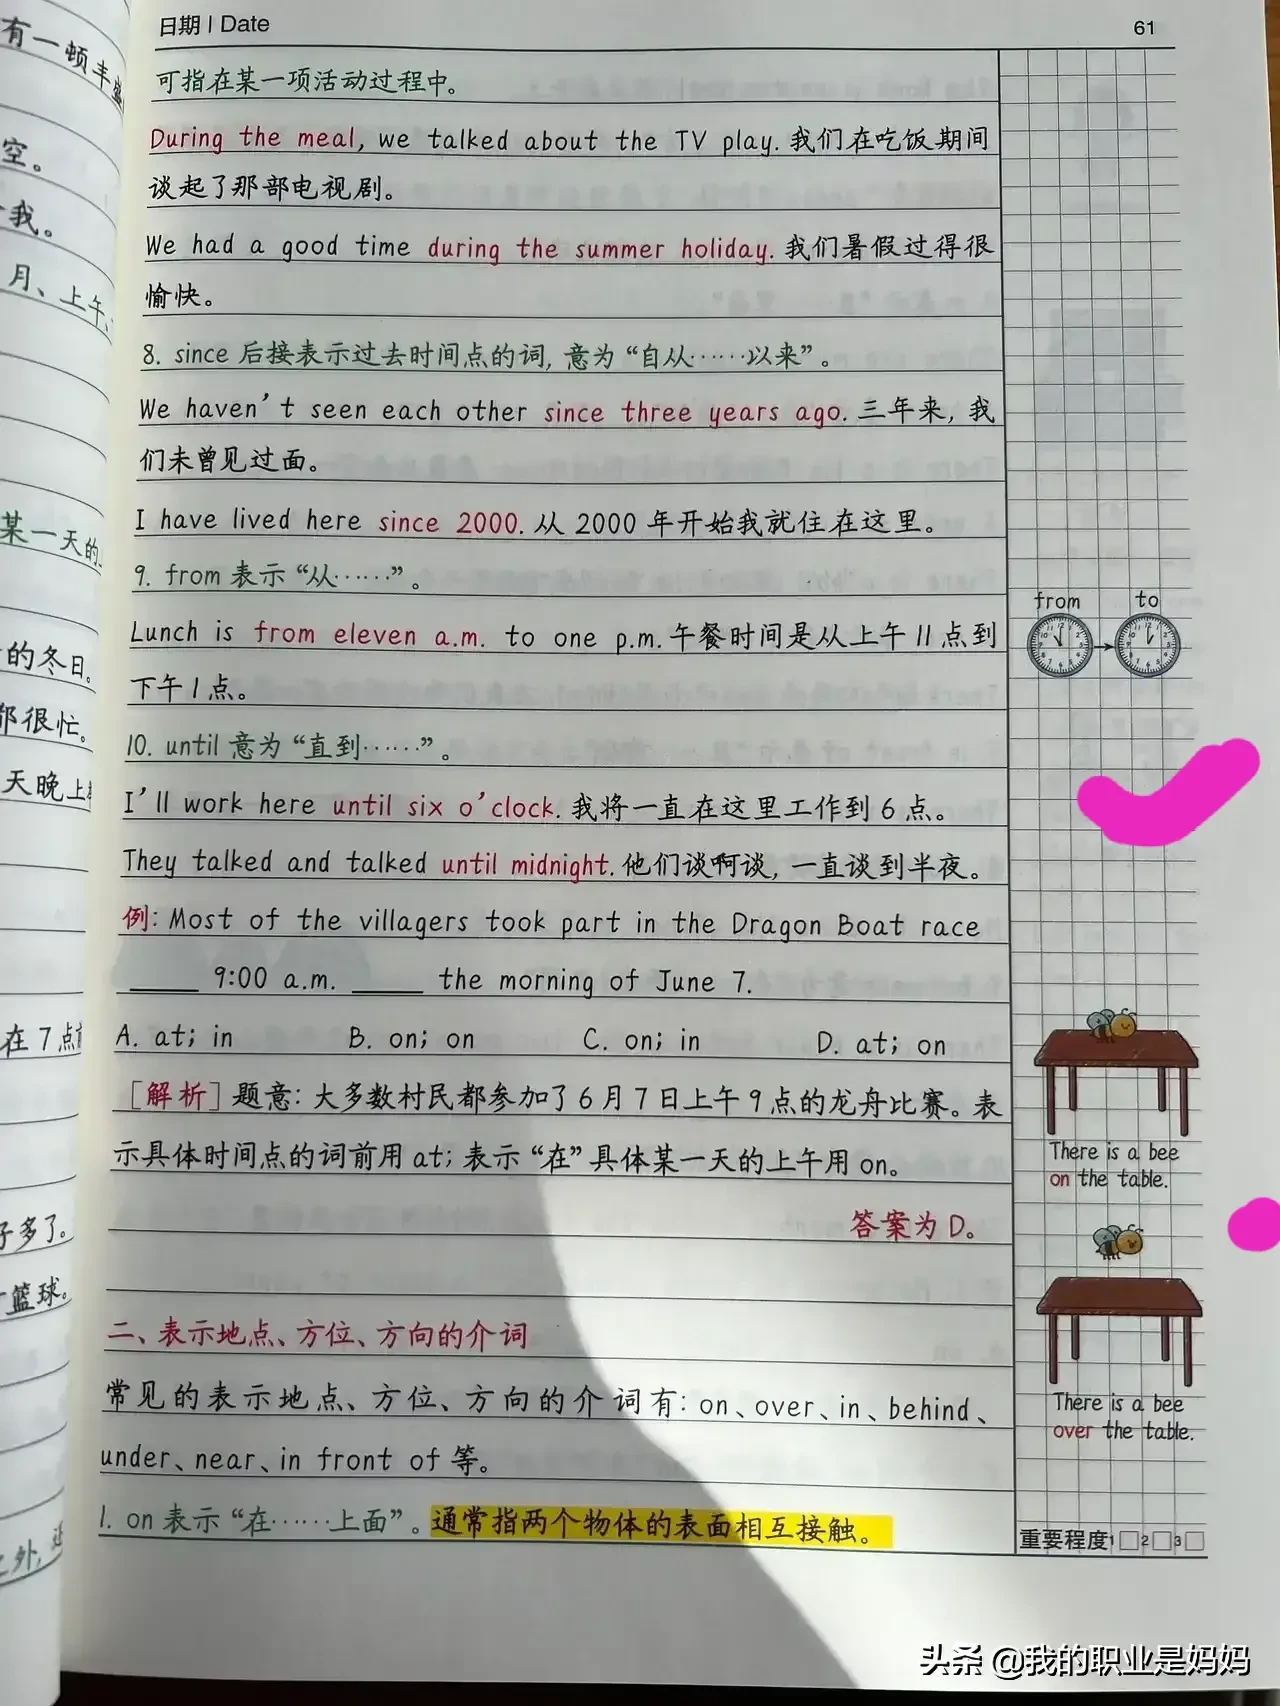 日期 | Date
61
可指在某一项活动过程中。
During the meal, we talked about the TV play. 我们在吃饭期间
谈起了那部电视剧。
We had a good time during the summer holiday. 我们暑假过得很
愉快。
8. since 后接表示过去时间点的词, 意为“自从……以来”。
We haven't seen each other since three years ago. 三年来, 我
们未曾见过面。
I have lived here since 2000. 从 2000 年开始我就住在这里。
9. from 表示“从……”。
Lunch is from eleven a.m. to one p.m. 午餐时间是从上午 11 点到
下午 1 点。
10. until 意为“直到……”。
I'll work here until six o'clock. 我将一直在这里工作到 6 点。
They talked and talked until midnight. 他们谈啊谈, 一直谈到半夜。
例: Most of the villagers took part in the Dragon Boat race
____ 9:00 a.m. ____ the morning of June 7.
A. at; in B. on; on C. on; in D. at; on
[解析] 题意: 大多数村民都参加了 6 月 7 日上午 9 点的龙舟比赛。表
示具体时间点的词前用 at; 表示“在”具体某一天的上午用 on。
答案为 D。
二、表示地点、方位、方向的介词
常见的表示地点、方位、方向的介词有: on、over、in、behind、
under、near、in front of 等。
1. on 表示“在……上面”。通常指两个物体的表面相互接触。
from to
There is a bee
on the table.
There is a bee
over the table.
重要程度 1 □ 2 □ 3 □
有一顿丰盛
空。
我。
月、上午、
某一天的
的冬日。
都很忙。
天晚上
在 7 点前
子多了。
篮球。
之外,
头条 @我的职业是妈妈